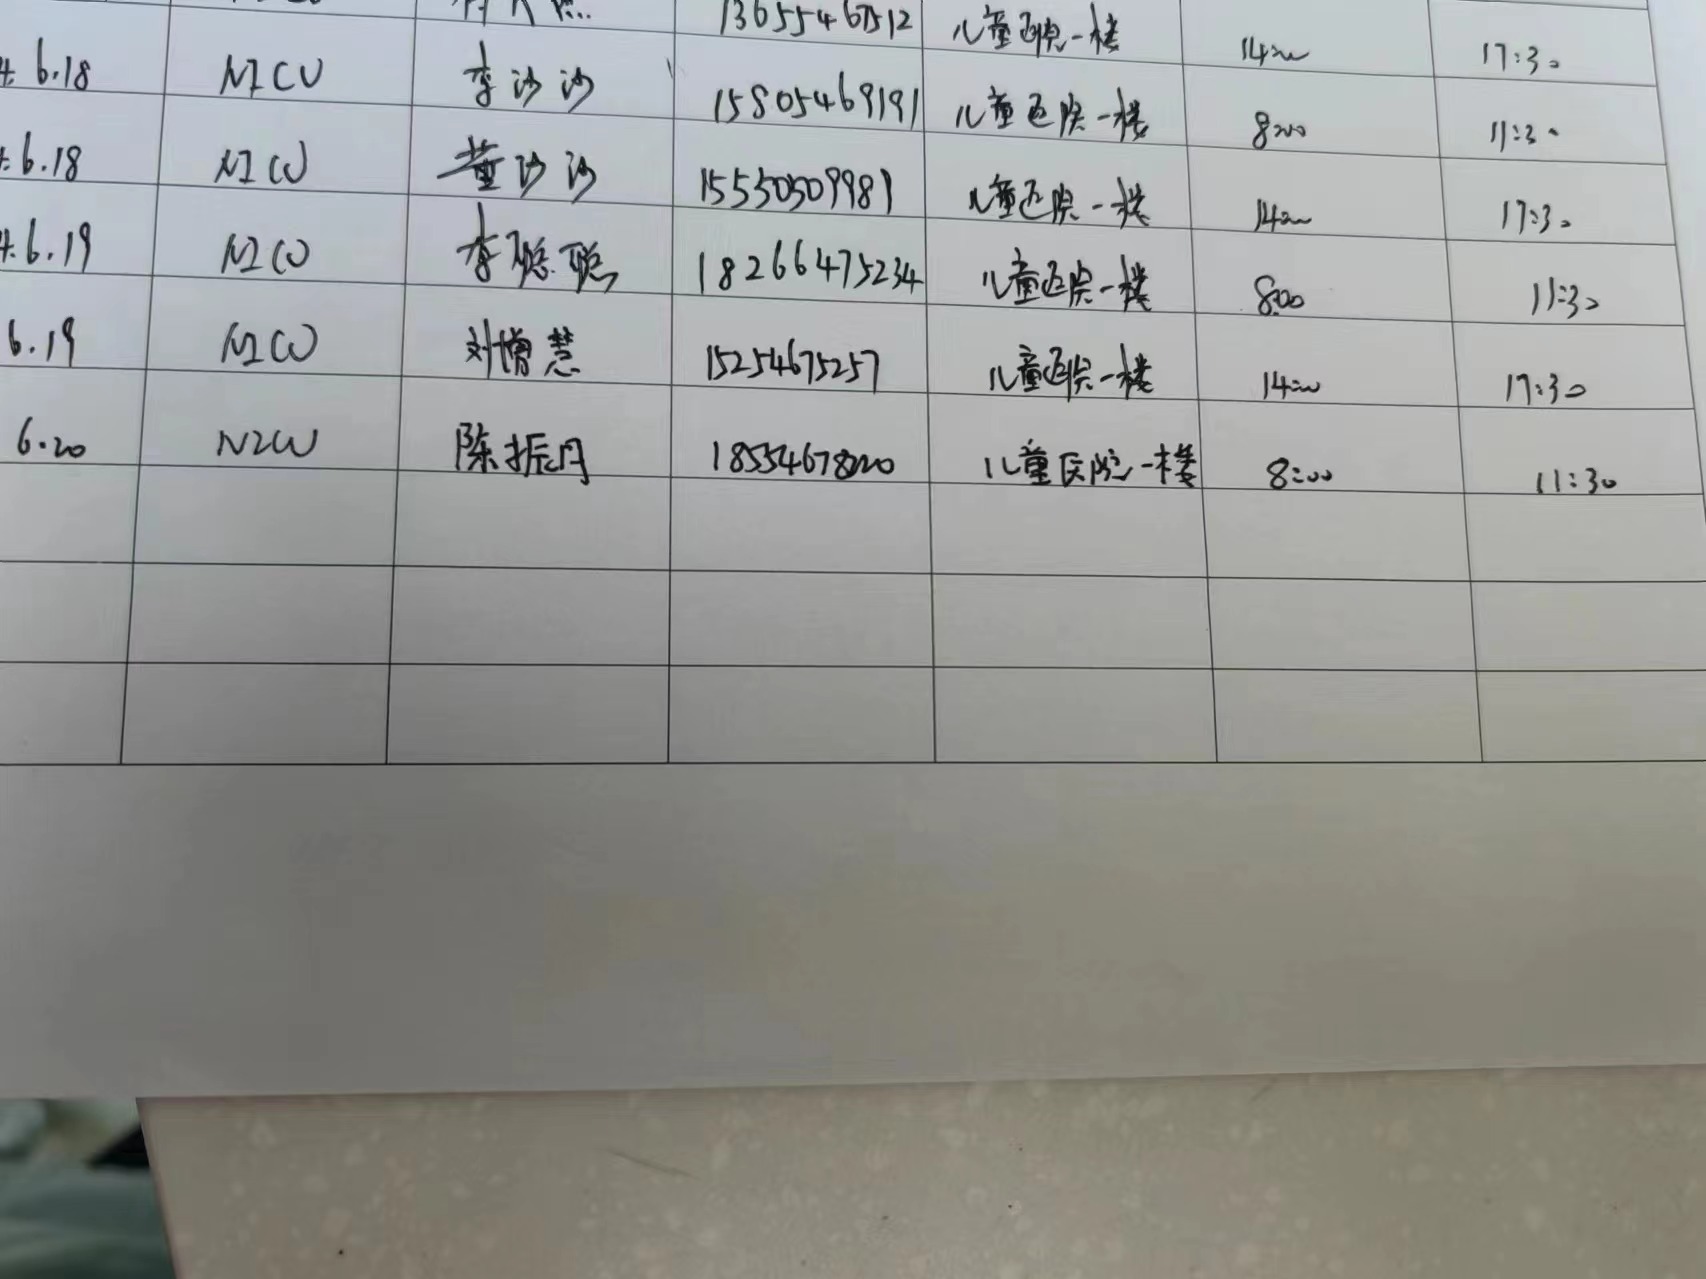 13655467512 儿童医院一楼 14:00 17:30
6.18 NICU 李沙沙 15805469191 儿童医院一楼 8:00 11:30
6.18 NICU 董沙沙 15550509981 儿童医院一楼 14:00 17:30
6.19 NICU 李聪聪 18266475234 儿童医院一楼 8:00 11:30
6.19 NICU 刘增慧 15254675257 儿童医院一楼 14:00 17:30
6.20 NICU 陈振丹 18554678220 儿童医院一楼 8:00 11:30